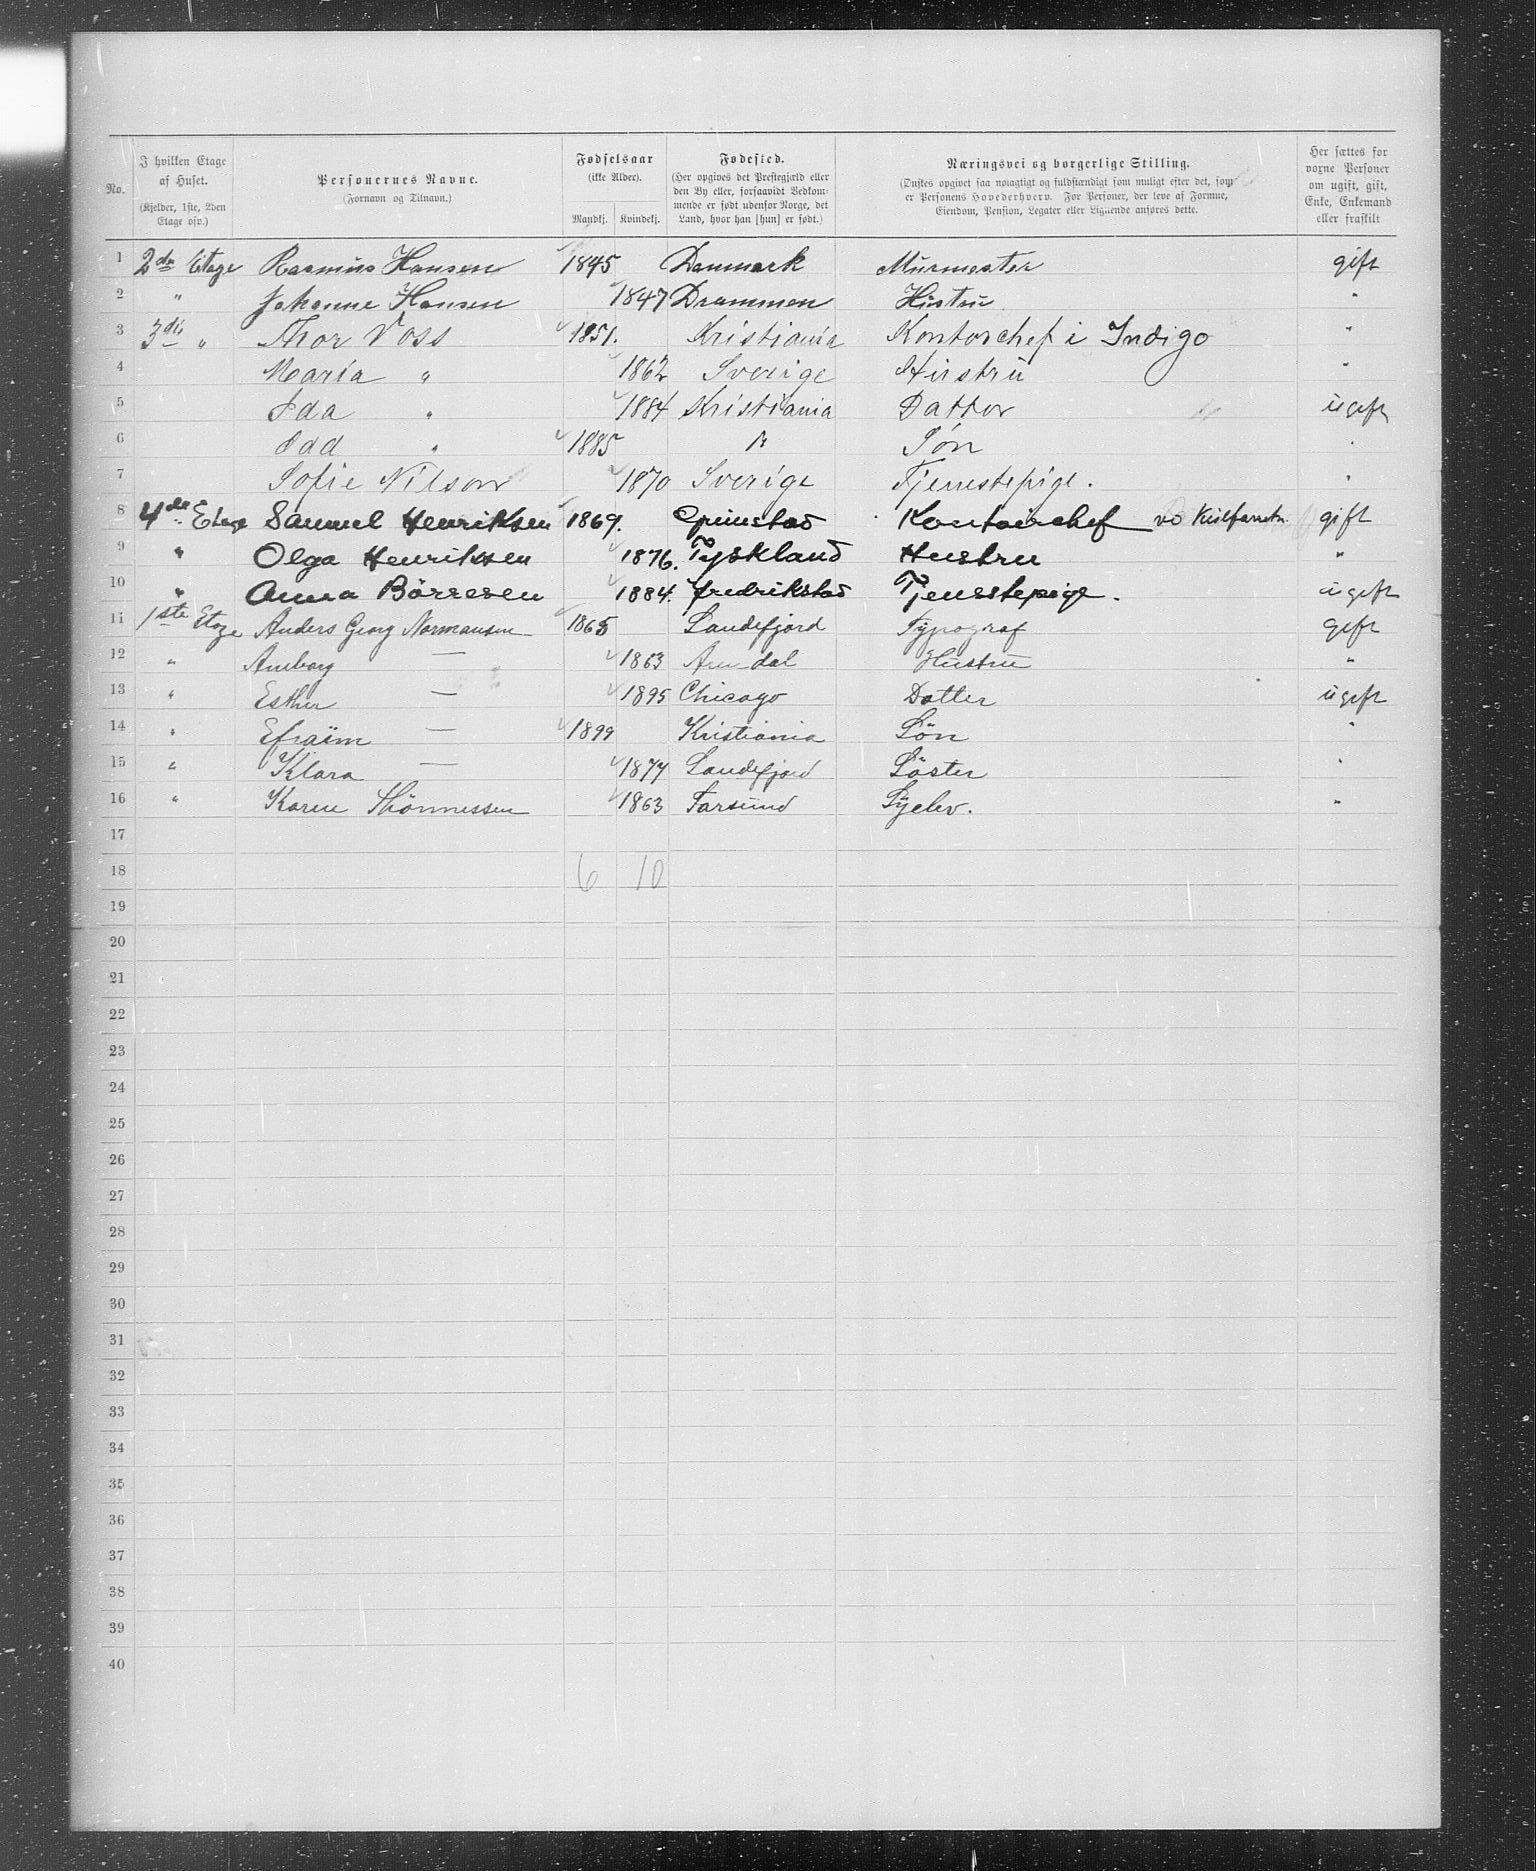 No.
I hvilken Etage af Huset.
(Kjelder, 1ste, 2den Etage osv.)
Personernes Navne.
(Fornavn og Tilnavn.)
Fødselsaar
(ikke Alder).
Mandkj. Kvindekj.
Fødested.
(Her opgives det Prestegjæld eller
den By eller, forsaavidt Vedkom-
mende er født udenfor Norge, det
Land, hvor han [hun] er født.)
Næringsvei og borgerlige Stilling.
(Ønskes opgivet saa nøiagtigt og fuldstændigt som muligt efter det, som
er Personens Hovederhverv. For Personer, der leve af Formue,
Eiendom, Pension, Legater eller Lignende anføres dette.
Her sættes for
voxne Personer
om ugift, gift,
Enke, Enkemand
eller fraskilt
1 2den Etage Rasmus Hansen 1845 Danmark Murmester gift
2 " Johanne Hansen 1847 Drammen Hustru "
3 3die " Thor Voss 1851. Kristiania Kontorchef i Indigo "
4 Maria " 1862 Sverige Hustru "
5 Ida " 1884 Kristiania Datter ugift
6 Odd " 1885 " Søn "
7 Sofie Nilson 1870 Sverige Tjenestepige. "
8 4de Etage Samuel Henriksen 1869. Grimstad Kontorchef gift
9 " Olga Henriksen 1876. Tyskland Hustru "
10 " Anna Börresen 1884. Fredrikstad Tjenestepige. ugift
11 1ste Etage Anders Georg Normansen 1865 Sandefjord Typograf gift
12 " — 1863 Arendal Hustru "
13 " Esther — 1895 Chicago Datter ugift
14 " Efraim — 1899 Kristiania Sön "
15 " Klara — 1877 Sandefjord Söster "
16 " Karen Thönnessen 1863 Farsund Syelev. "
17
18 6 10
19
20
21
22
23
24
25
26
27
28
29
30
31
32
33
34
35
36
37
38
39
40